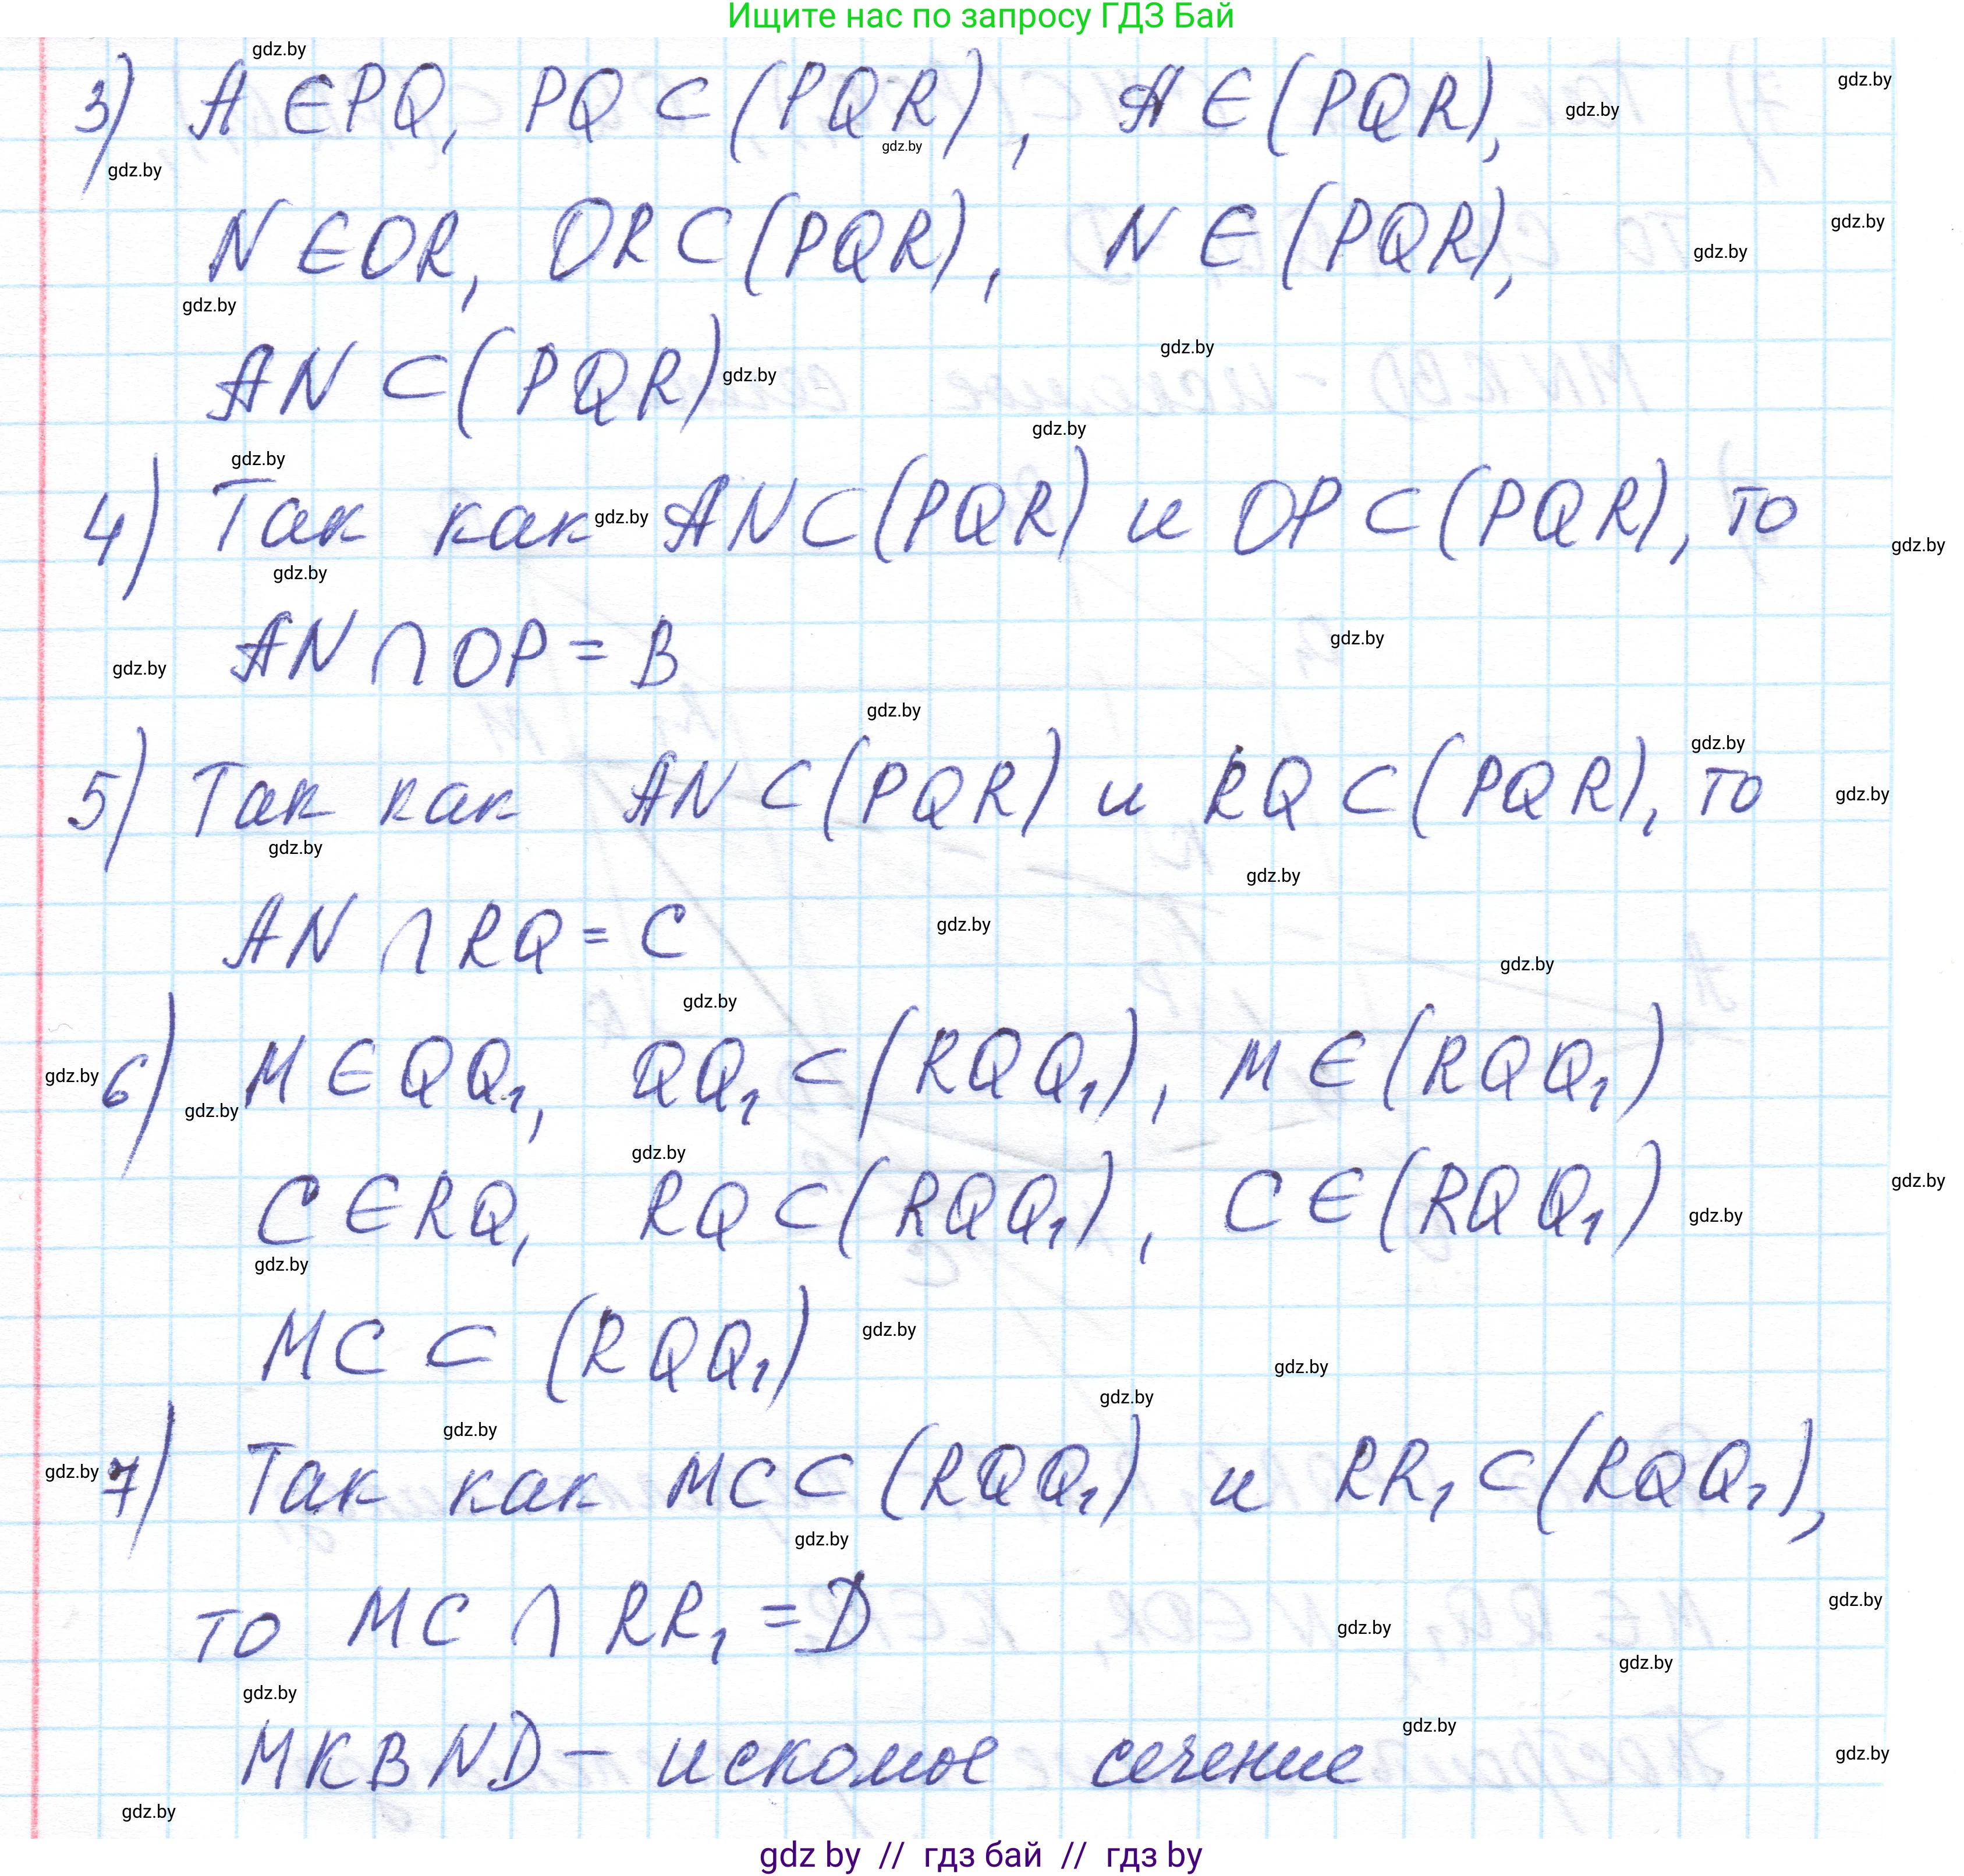 Ищите нас по запросу ГДЗ Бай
3) A ∈ PQ, PQ ⊂ (PQR), A ∈ (PQR),
N ∈ OR, OR ⊂ (PQR), N ∈ (PQR),
AN ⊂ (PQR)
4) Так как AN ⊂ (PQR) и OP ⊂ (PQR), то
AN ∩ OP = B
5) Так как AN ⊂ (PQR) и RQ ⊂ (PQR), то
AN ∩ RQ = C
6) M ∈ QQ₁, QQ₁ ⊂ (RQQ₁), M ∈ (RQQ₁)
C ∈ RQ, RQ ⊂ (RQQ₁), C ∈ (RQQ₁)
MC ⊂ (RQQ₁)
7) Так как MC ⊂ (RQQ₁) и RR₁ ⊂ (RQQ₁),
то MC ∩ RR₁ = D
MKBND – искомое сечение
gdz by // гдз бай // гдз by